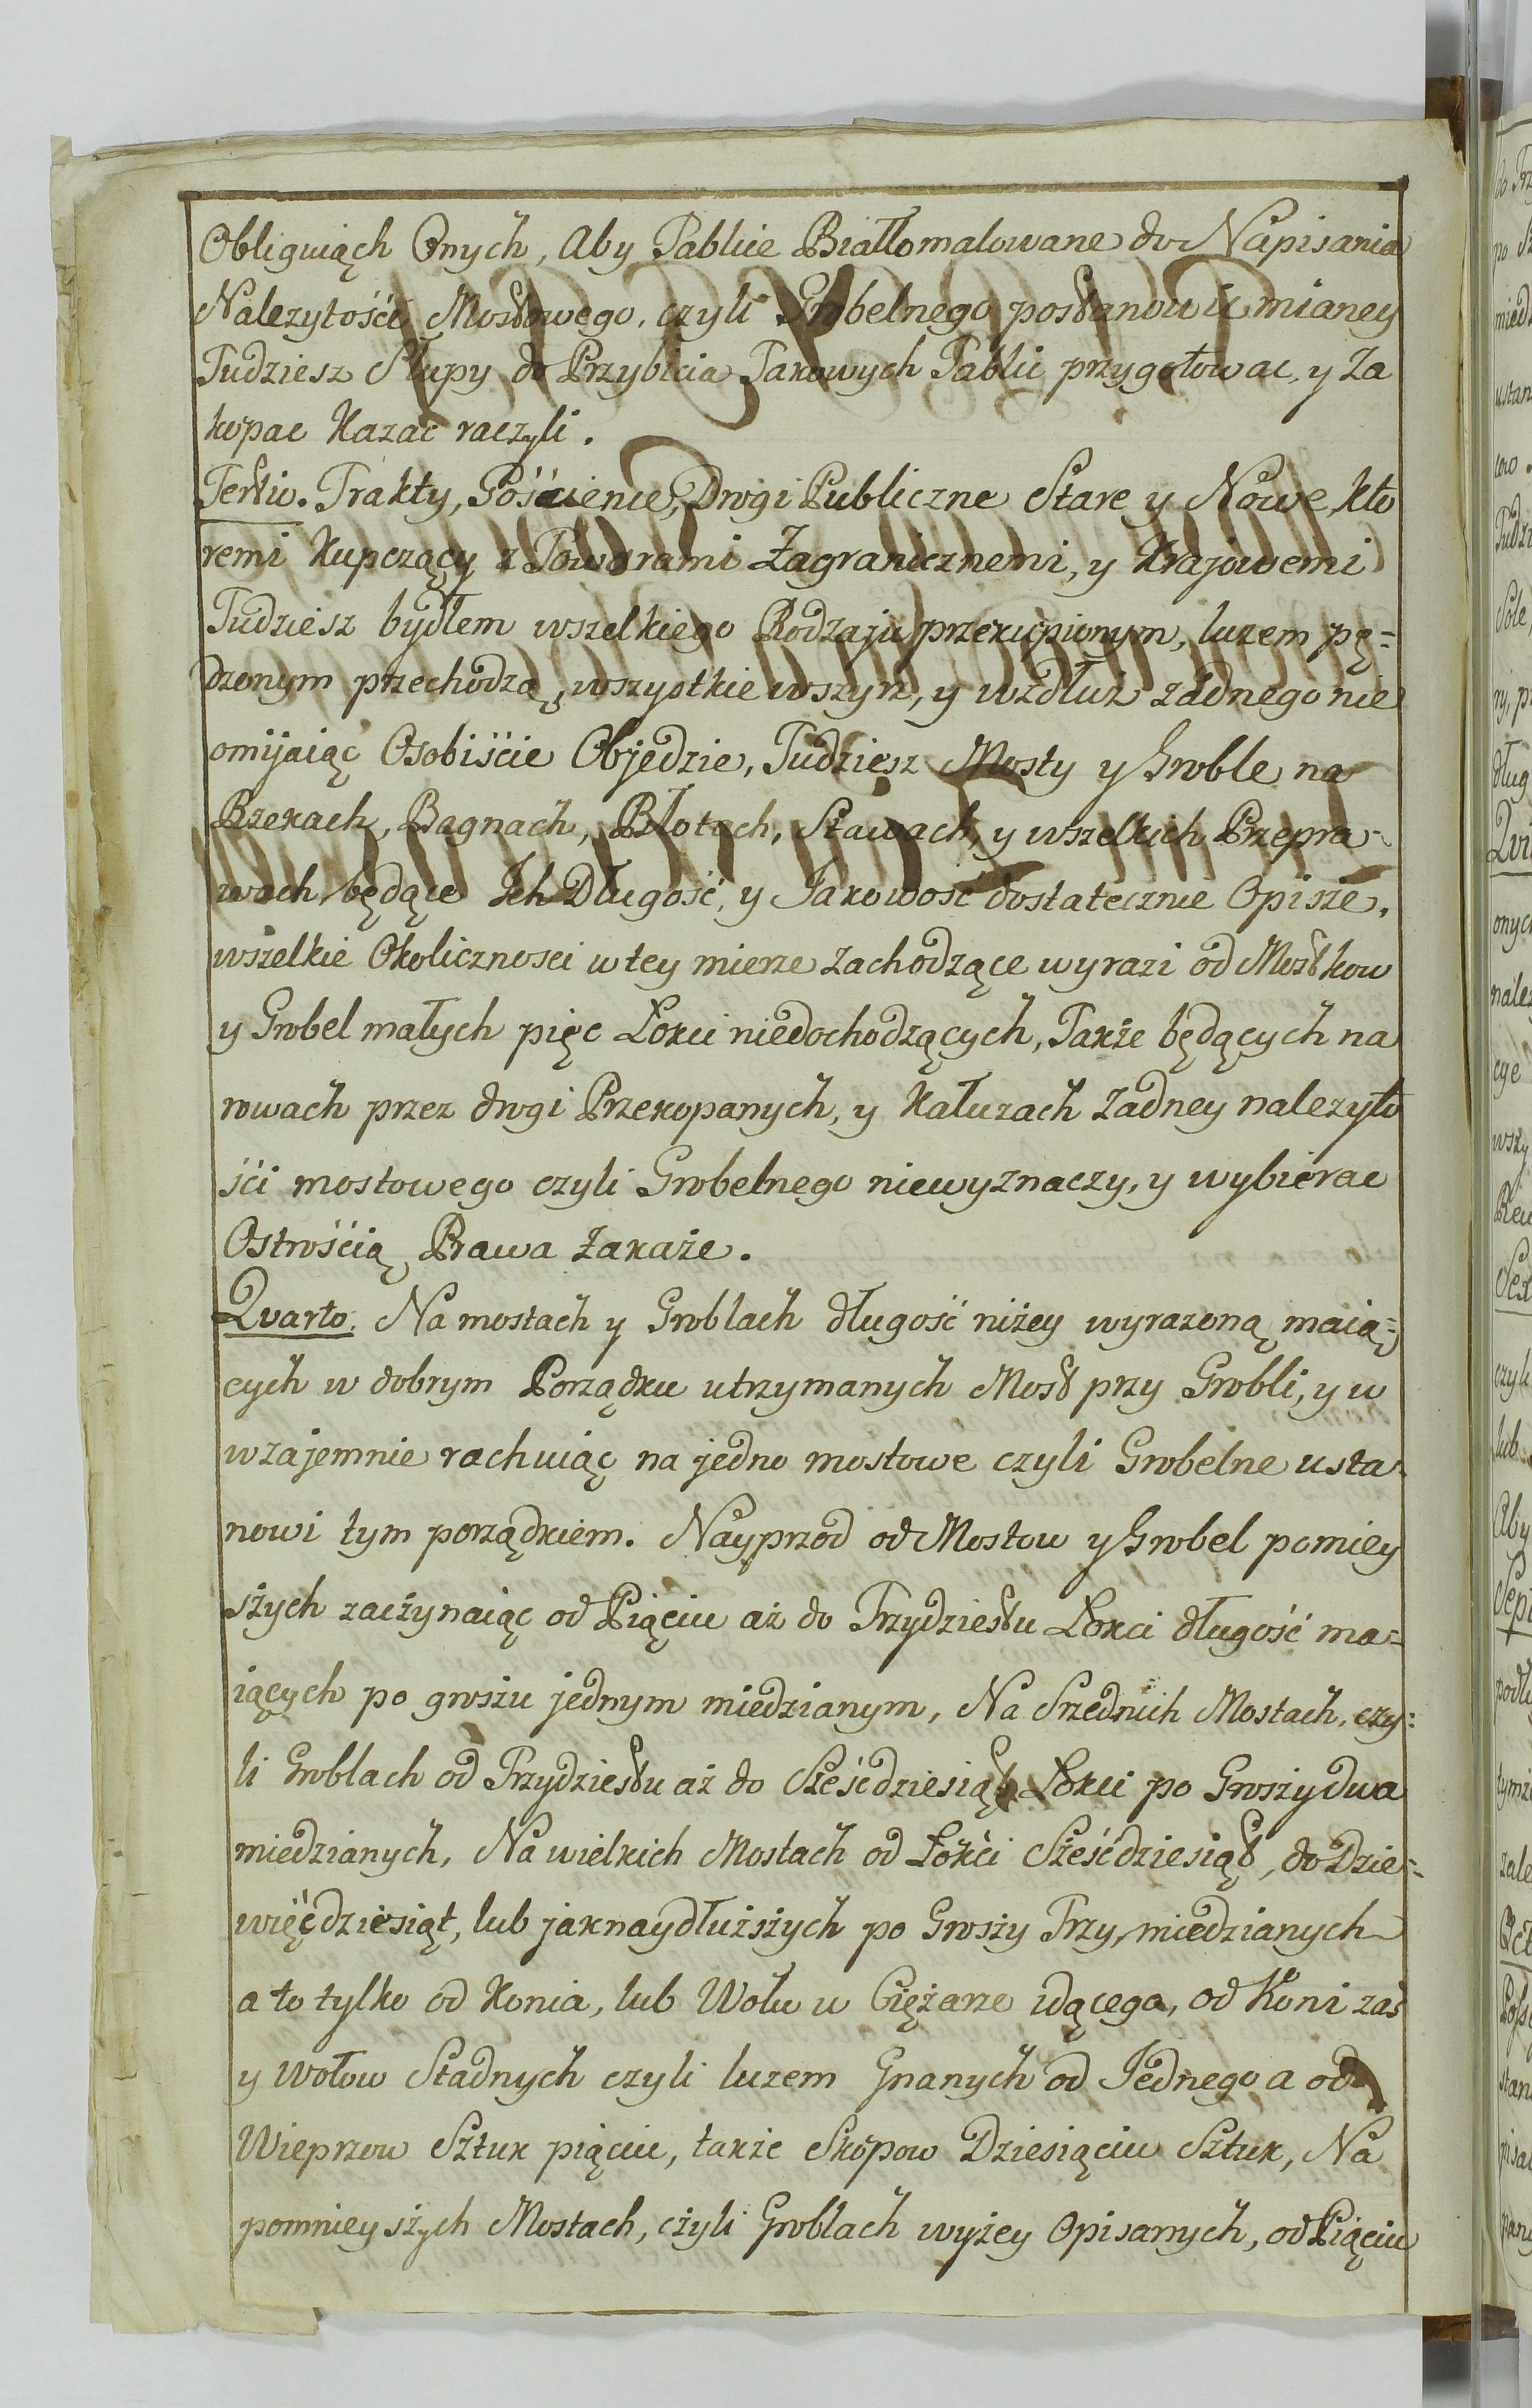 Obliguiąch Onych, Aby Tablice Biało malowane do Napisania
Nalezytości Mostowego, czyli Grobelnego postanowic mianey
Tudziesz Słupy do Przybicia Takowych Tablic przygotowac, y Za
kopac Kazac raczyli.
Tertio. Trakty, Gościence, Drogi Publiczne Stare y Nowe, kto
remi Kupczący z Towarami Zagranicznemi, y Krajowemi
Tudziesz bydłem wszelkiego Rodzaju przekupionym, luzem pę=
dzonym przechodzą, wszystkie wszyrz, y wzdłuż żadnego nie
omijaiąc Osobiście Objedzie, Tudziesz Mosty y Groble na
Rzekach, Bagnach, Błotach, Stawach, y wszelkich Przepra=
wach będące Ich Długość, y Jakowość dostatecznie Opisze,
wszelkie Okolicznosci w tey mierze zachodzące wyrazi od Mostkow
y Grobel małych pięc Łokci niedochodzących, Także będących na
rowach przez drogi Przekopanych, y Kałuzach Zadney nalezyto
ści mostowego czyli Grobelnego niewyznaczy, y wybierac
Ostrością Prawa Zakaże.
Qvarto. Na mostach y Groblach długość niżey wyrazoną maią=
cych w dobrym Porządku utrzymanych Most przy Grobli, y w
wzajemnie rachuiąc na jedno mostowe czyli Grobelne usta=
nowi tym porządkiem. Nayprzod od Mostow y Grobel pomiey
szych zaczynaiąc od Piąciu aż do Trzydziestu Łokci długość ma=
iących po groszu jednym miedzianym, Na Srzednich Mostach, czy=
li Groblach od Trzydziestu aż do Sześćdziesiąt Łokci po Groszy dwa
miedzianych, Na wielkich Mostach od Łokci Sześćdziesiąt, do Dzie=
więćdziesiąt, lub jaknaydłuższych po Groszy Trzy miedzianych
a to tylko od Konia, lub Wołu w Ciężarze idącego, od Koni zaś
y Wołow Stadnych czyli luzem Gnanych od Jednego a od
Wieprzow Sztuk piąciu, także Skopow Dziesiąciu Sztuk, Na
pomnieyszych Mostach, czyli Groblach wyżey Opisanych, od Piąciu